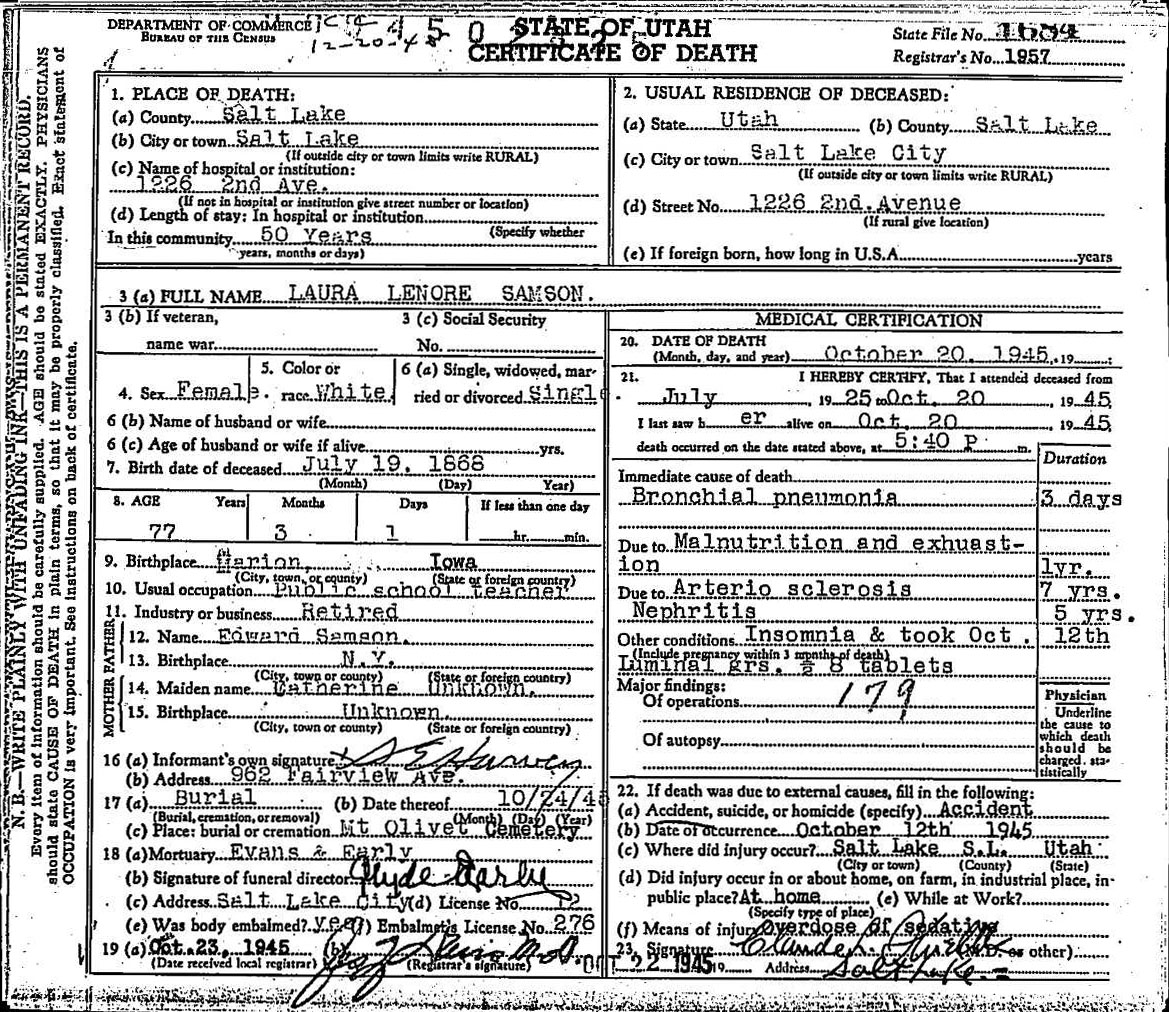 DEPARTMENT OF COMMERCE
BUREAU OF THE CENSUS
12-20-45
STATE OF UTAH
CERTIFICATE OF DEATH
State File No.
Registrar's No. 1957
N. B.—WRITE PLAINLY WITH UNFADING INK—THIS IS A PERMANENT RECORD.
Every item of information should be carefully supplied. AGE should be stated EXACTLY. PHYSICIANS
should state CAUSE OF DEATH in plain terms, so that it may be properly classified. Exact statement of
OCCUPATION is very important. See instructions on back of certificate.
1. PLACE OF DEATH:
(a) County Salt Lake
(b) City or town Salt Lake
(If outside city or town limits write RURAL)
(c) Name of hospital or institution:
1226 2nd Ave.
(If not in hospital or institution give street number or location)
(d) Length of stay: In hospital or institution
(Specify whether
In this community 50 Years
years, months or days)
2. USUAL RESIDENCE OF DECEASED:
(a) State Utah (b) County Salt Lake
(c) City or town Salt Lake City
(If outside city or town limits write RURAL)
(d) Street No. 1226 2nd. Avenue
(If rural give location)
(e) If foreign born, how long in U.S.A. years
3 (a) FULL NAME LAURA LENORE SAMSON.
3 (b) If veteran,
name war
3 (c) Social Security
No.
4. Sex Female.
5. Color or
race White.
6 (a) Single, widowed, mar-
ried or divorced Single
6 (b) Name of husband or wife
6 (c) Age of husband or wife if alive yrs.
7. Birth date of deceased July 19, 1868
(Month) (Day) Year)
8. AGE Years Months Days If less than one day
77 3 1 hr. min.
9. Birthplace Marion, Iowa
(City, town, or county) (State or foreign country)
10. Usual occupation Public school teacher
11. Industry or business Retired
FATHER
12. Name Edward Samson.
13. Birthplace N.Y.
(City, town or county) (State or foreign country)
MOTHER
14. Maiden name Catherine Unknown.
15. Birthplace Unknown
(City, town or county) (State or foreign country)
16 (a) Informant's own signature S E Harvey
(b) Address 962 Fairview Ave.
17 (a) Burial (b) Date thereof 10/24/45
(Burial, cremation, or removal) (Month) (Day) (Year)
(c) Place: burial or cremation Mt Olivet Cemetery
18 (a) Mortuary Evans & Early
(b) Signature of funeral director Clyde Early
(c) Address Salt Lake City (d) License No. 72
(e) Was body embalmed? yes (f) Embalmer's License No. 276
19 (a) Oct. 23, 1945 (b)
(Date received local registrar) (Registrar's signature)
MEDICAL CERTIFICATION
20. DATE OF DEATH
(Month, day, and year) October 20, 1945, 19
21. I HEREBY CERTIFY, That I attended deceased from
July 19 25 to Oct. 20, 19 45
I last saw h er alive on Oct. 20, 19 45
death occurred on the date stated above, at 5:40 P. m.
Duration
Immediate cause of death
Bronchial pneumonia 3 days
Due to Malnutrition and exhuast-
ion 1yr.
Due to Arterio sclerosis 7 yrs.
Nephritis 5 yrs.
Other conditions Insomnia & took Oct. 12th
(Include pregnancy within 3 months of death)
Luminal grs. ½ 8 tablets
Major findings:
Of operations 179
Of autopsy
Physician
Underline
the cause to
which death
should be
charged sta-
tistically
22. If death was due to external causes, fill in the following:
(a) Accident, suicide, or homicide (specify) Accident
(b) Date of occurrence October 12th 1945
(c) Where did injury occur? Salt Lake S.L. Utah
(City or town) (County) (State)
(d) Did injury occur in or about home, on farm, in industrial place, in-
public place? At home (e) While at Work?
(Specify type of place)
(f) Means of injury Overdose of sedative
23. Signature (M.D. or other)
OCT 22 1945 19 Address Salt Lake